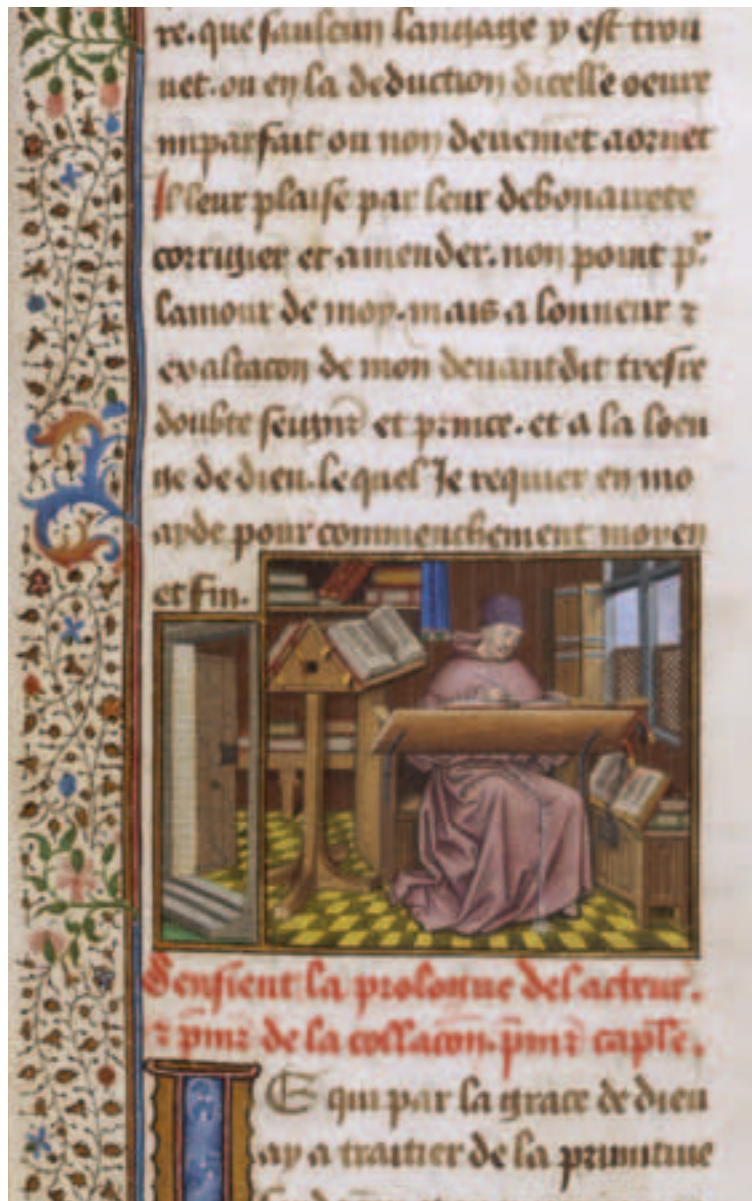 re. que saulcun langaige y est trou
uet. ou en la deduction dicelle oeure
imparfait ou non deuemet aornet
Il leur plaise par leur debonairete
corrigier et amender. non point pr
lamour de moy. mais a lonneur ⁊
exaltacon de mon deuantdit tresre
doubte seignr et prince. et a la loen
ge de dieu. le quel Je requier en mo
ayde pour commenchement moyen
et fin.
Sensieut la prologue de lacteur.
⁊ pmr de la collacon. pmr caple.
Je qui par la grace de dieu
ay a traitier de la primitiue